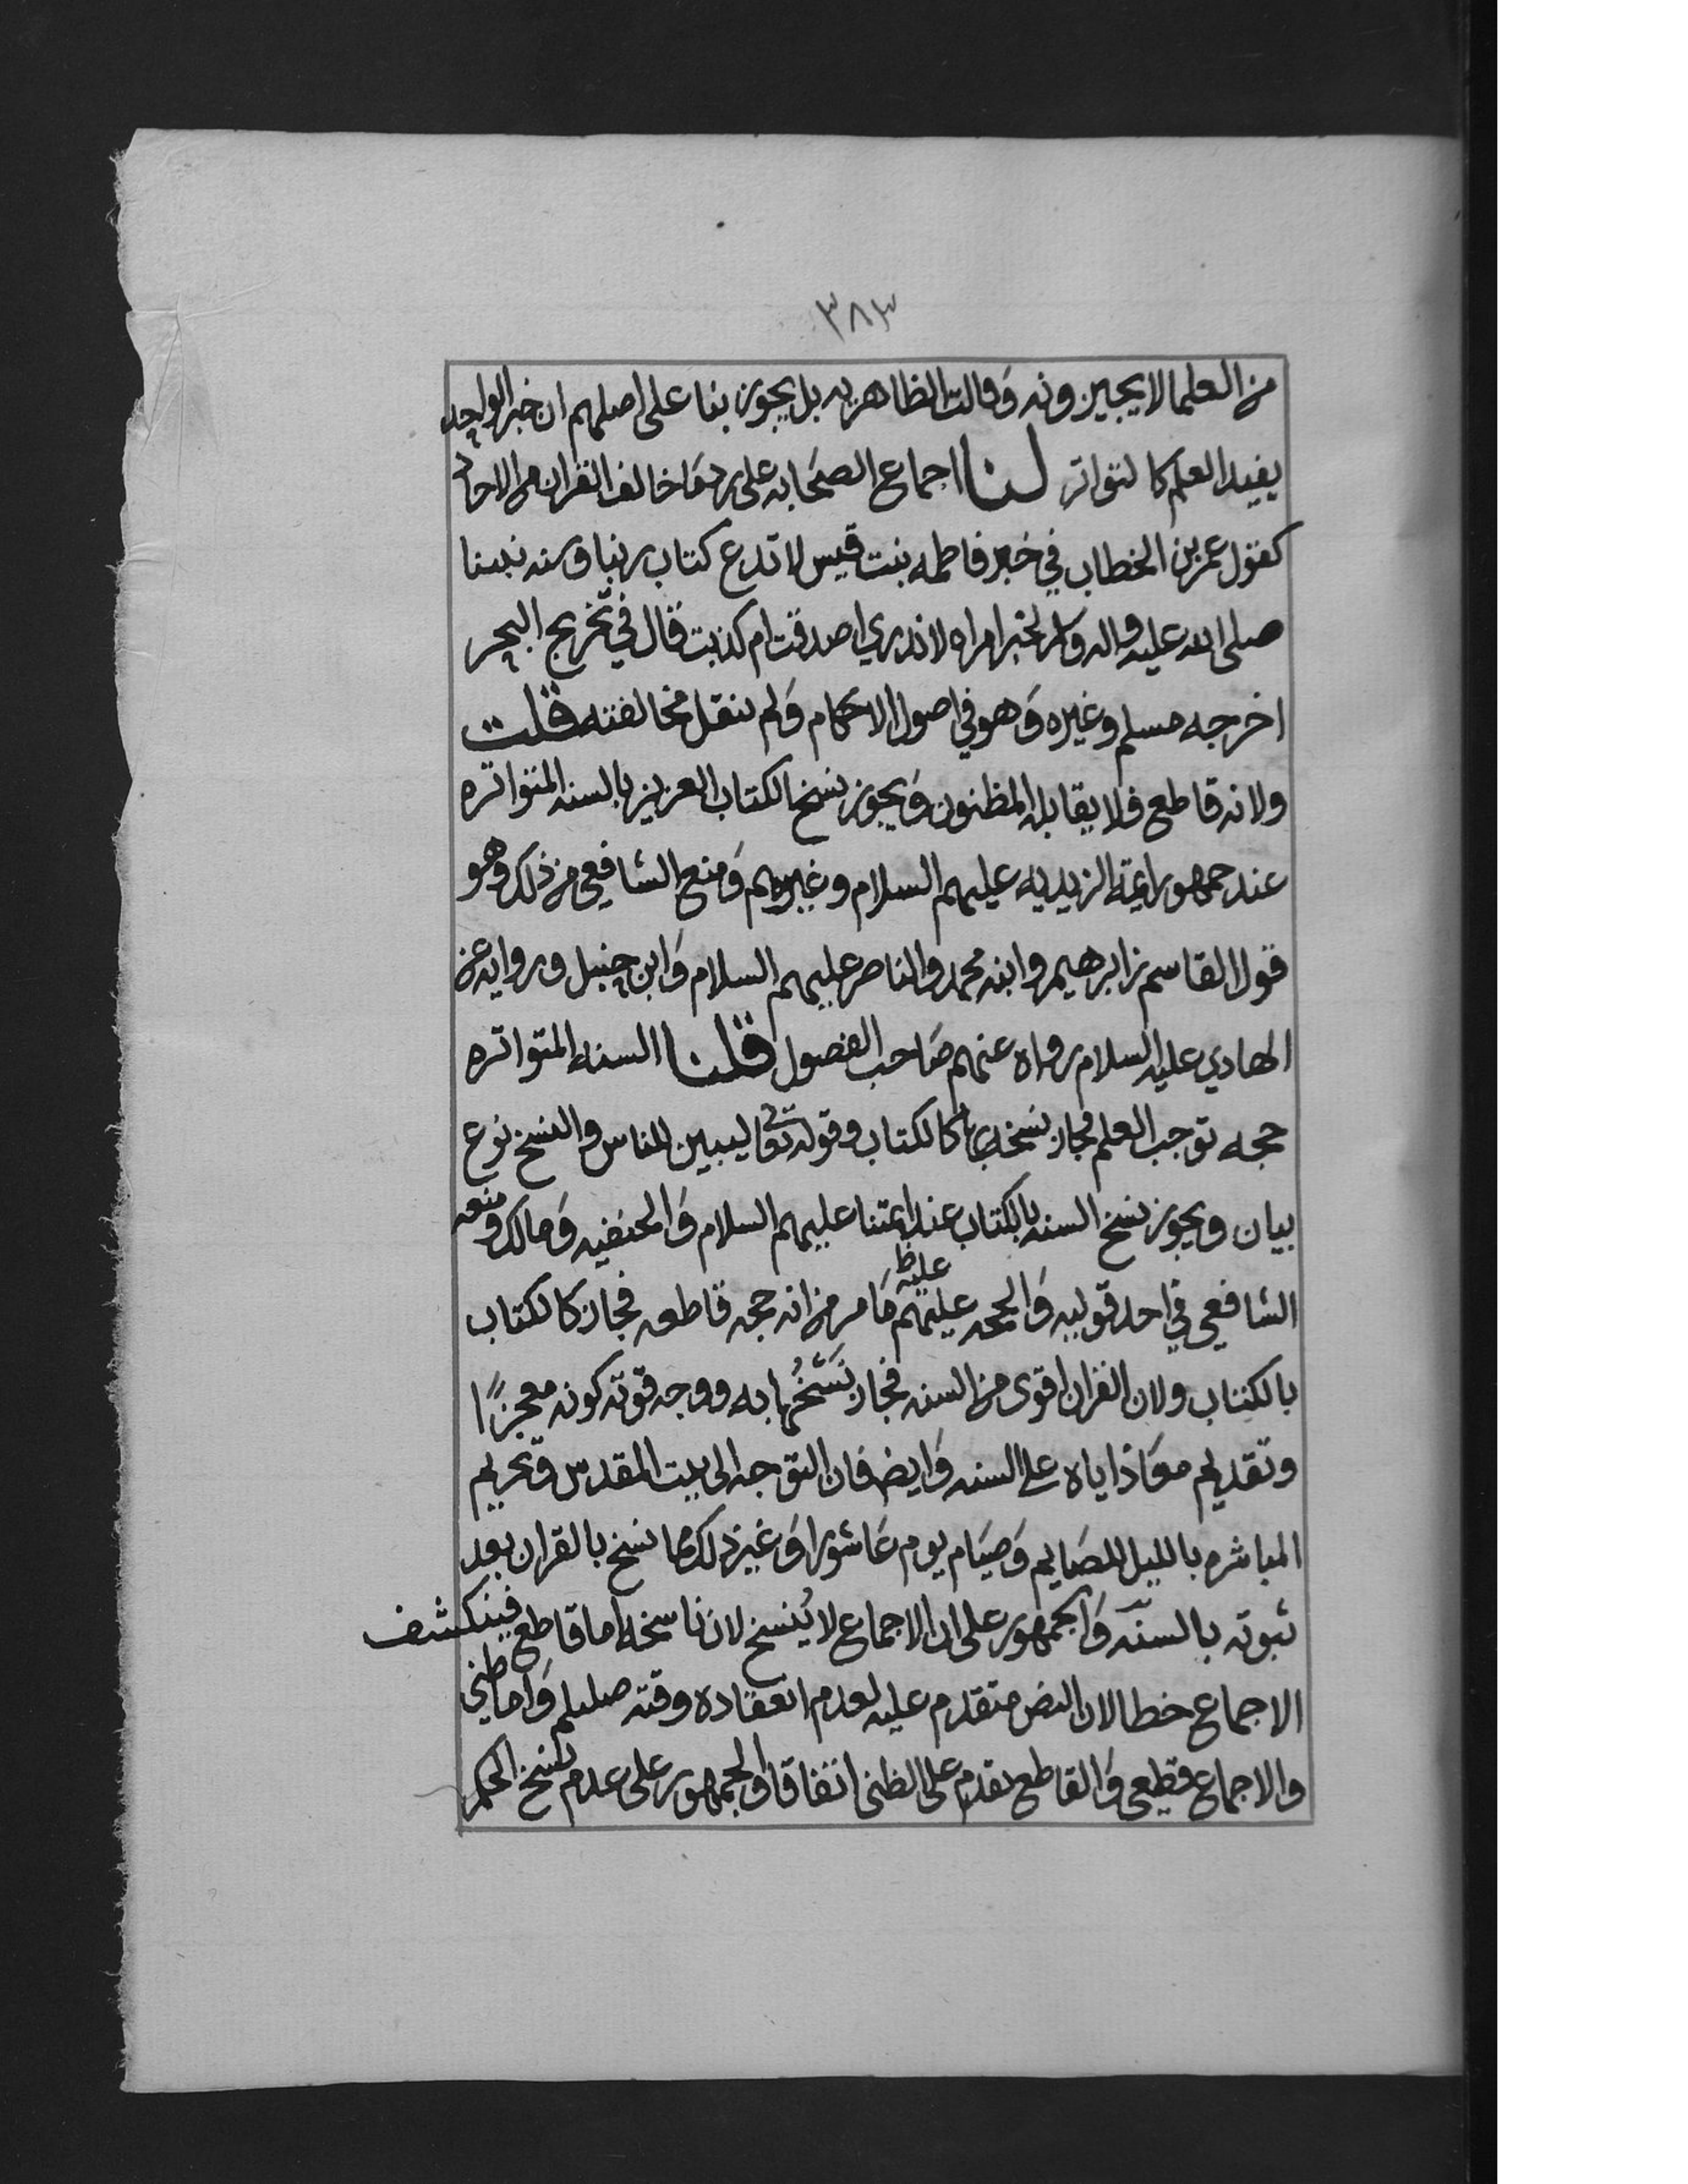 ٣٨٣
من العلما لا يجيزونه وقالت الظاهريه بل يجوز بنا على اصلهم ان خبر الواحد
يفيد العلم كالتواتر لنا اجماع الصحابه على رد ما خالف القران من الاحاد
كقول عمر بن الخطاب في خبر فاطمه بنت قيس لا ندع كتاب ربنا وسنه نبينا
صلى الله عليه واله وسلم لخبر امراه لا ندري اصدقت ام كذبت قال في تخريج البحر
اخرجه مسلم وغيره وهو في اصول الاحكام ولم ينقل مخالفته قلت
ولانه قاطع فلا يقابله المظنون ويجوز نسخ الكتاب العزيز بالسنه المتواتره
عند جمهور ايمة الزيديه عليهم السلام وغيرهم ومنع الشافعي من ذلك وهو
قول القاسم بن ابرهيم وابنه محمد والناصر عليهم السلام وابن حنبل وروايه عن
الهادي عليه السلام رواه عنهم صاحب الفصول قلنا السنه المتواتره
حجه توجب العلم فجاز نسخه بها كالكتاب وقوله تعالى ليبين للناس والنسخ نوع
بيان ويجوز نسخ السنه بالكتاب عند ايمتنا عليهم السلام والحنفيه ومالك ومنعه
الشافعي في احد قوليه والحجه عليهم عليه ظ ما مر من انه حجه قاطعه فجاز كالكتاب
بالكتاب ولان القران اقوى من السنه فجاز نسخها به ووجه قوته كونه معجزًا
وتقديم معاذ اياه على السنه وايض فان التوجه الى بيت المقدس وتحريم
المباشره بالليل للصايم وصيام يوم عاشورا وغير ذلك مما نسخ بالقران بعد
ثبوته بالسنه والجمهور على ان الاجماع لا يُنسخ لان ناسخه اما قاطع فينكشف
الاجماع خطا لان النص متقدم عليه لعدم انعقاده وقته صلىلم واما ظني
والاجماع قطعي والقاطع يقدم على الظني اتفاقا والجمهور على عدم نسخ الحكم